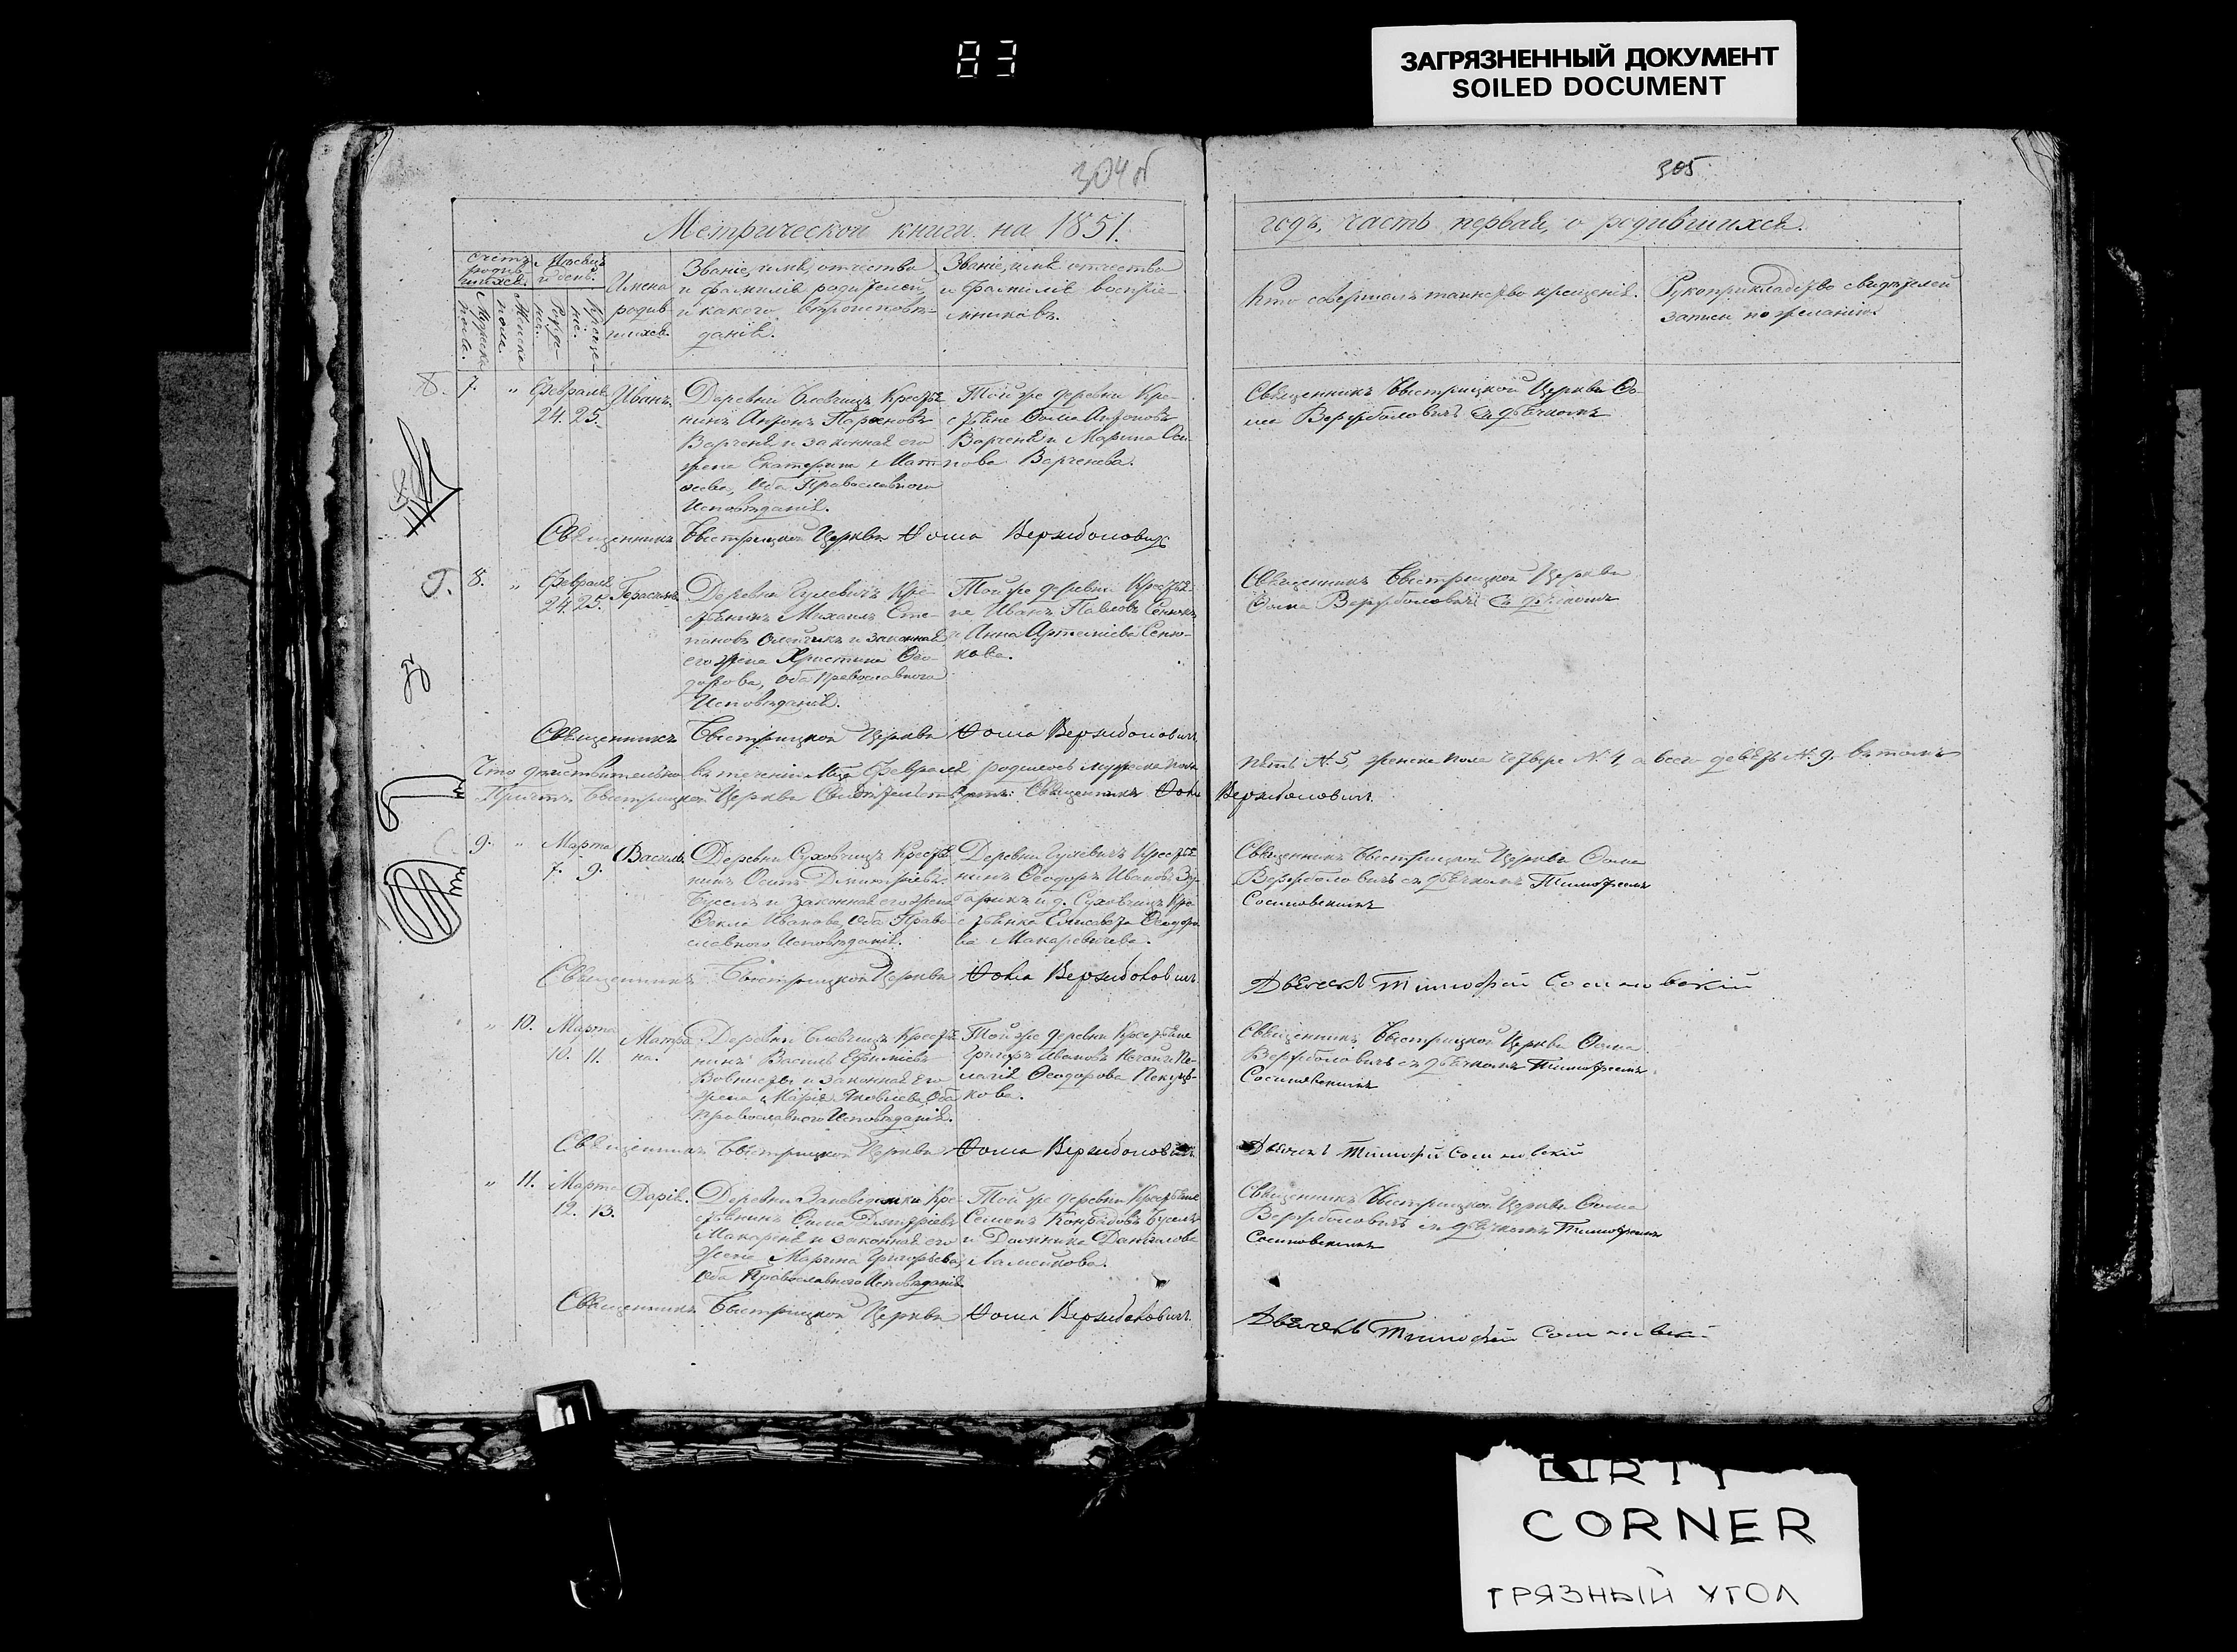 83
ЗАГРЯЗНЕННЫЙ ДОКУМЕНТ
SOILED DOCUMENT
304 об
305
Метрической книги на 1851.
годъ, часть первая, о родившихся.
Счетъ родив-шихся.
Мужеска пола.
Женска пола.
Мѣсяцъ и день.
Рожде-нія.
Креще-нія.
Имена
родив
шихся.
Званіе, имя, отчество
и фамилія родителей,
и какого вѣроисповѣ-
данія.
Званіе, имя отчество
и фамилія воспріе-
мниковъ.
Кто совершалъ таинство крещенія.
Рукоприкладство свидѣтелей
записи по желанію.
8. 7. " Февраля
24. 25.
Иванъ.
Деревни Крестья
нинъ Антонъ
Варченя и законная его
жена Екатерина Мат
ѳеева, Оба Православнаго
Исповѣданія.
Той же деревни Кре-
стьяне Ѳома Антоновъ
Варченя и Марина Оси
пова Варченева.
Священникъ Быстрицкой Церкви Ѳо
ма Вержболовичъ съ дьячкомъ
Священникъ Быстрицкой Церкви Ѳома Вержболовичъ
9. 8. " Февраля
24. 25.
Герасимъ
Деревни Гулевичъ Кре-
стьянинъ Михаилъ Сте-
пановъ Олейчикъ и законная
его жена Христина Ѳео-
дорова, Оба Православнаго
Исповѣданія.
Той же деревни Крестья
не Иванъ Павловъ Сенюкъ
и Анна Артеміева Сеню-
кова.
Священникъ Быстрицкой Церкви
Ѳома Вержболовичъ съ дьячкомъ
Священникъ Быстрицкой Церкви Ѳома Вержболовичъ
Что дѣйствительно въ теченіи Мца Февраля родилось мужеска пола пять N. 5, женска пола четыре N. 4, а всего девять N. 9. въ томъ
Причтъ Быстрицкой Церкви Свидѣтельствуетъ: Священникъ Ѳома Вержболовичъ.
9. " Марта
7. 9.
Василь
Деревни Суховчицъ Крестья
нинъ Осипъ Димитріевъ
Бусель и законная его жена
Ѳекла Иванова, Оба Право
славнаго Исповѣданія.
Деревни Гулевичъ Крестья
нинъ Ѳеодоръ Ивановъ
и д. Суховчицъ Кре
стьянка Елисавета Ѳеодоро
ва Макаревичева.
Священникъ Быстрицкой Церкви Ѳома
Вержболовичъ съ дьячкомъ Тимофеемъ
Сосиновскимъ
Священникъ Быстрицкой Церкви Ѳома Вержболовичъ
Дьячекъ Тимофей Сосиновскій
" 10. Марта
10. 11.
Матро
на.
Деревни Крестья
нинъ Василь Ефимовъ
и законная его
жена Марія Яковлева Оба
Православнаго Исповѣданія.
Той же деревни Крестьяне
Григоръ Ивановъ и Пе-
лагія Ѳеодорова
кова.
Священникъ Быстрицкой Церкви Ѳома
Вержболовичъ съ дьячкомъ Тимофеемъ
Сосиновскимъ
Священникъ Быстрицкой Церкви Ѳома Вержболовичъ
Дьячекъ Тимофей Сосиновскій
" 11. Марта
12. 13.
Дарія.
Деревни Кре-
стьянинъ Ѳома Дмитріевъ
Макареня и законная его
жена Марина Григорьева
Оба Православнаго Исповѣданія
Той же деревни Крестьяне
Семенъ Кондратовъ Бусель
и Домникія Данилова
Священникъ Быстрицкой Церкви Ѳома
Вержболовичъ съ дьячкомъ Тимофеемъ
Сосиновскимъ
Священникъ Быстрицкой Церкви Ѳома Вержболовичъ
Дьячекъ Тимофей Сосиновскій
DIRTY
CORNER
ГРЯЗНЫЙ УГОЛ